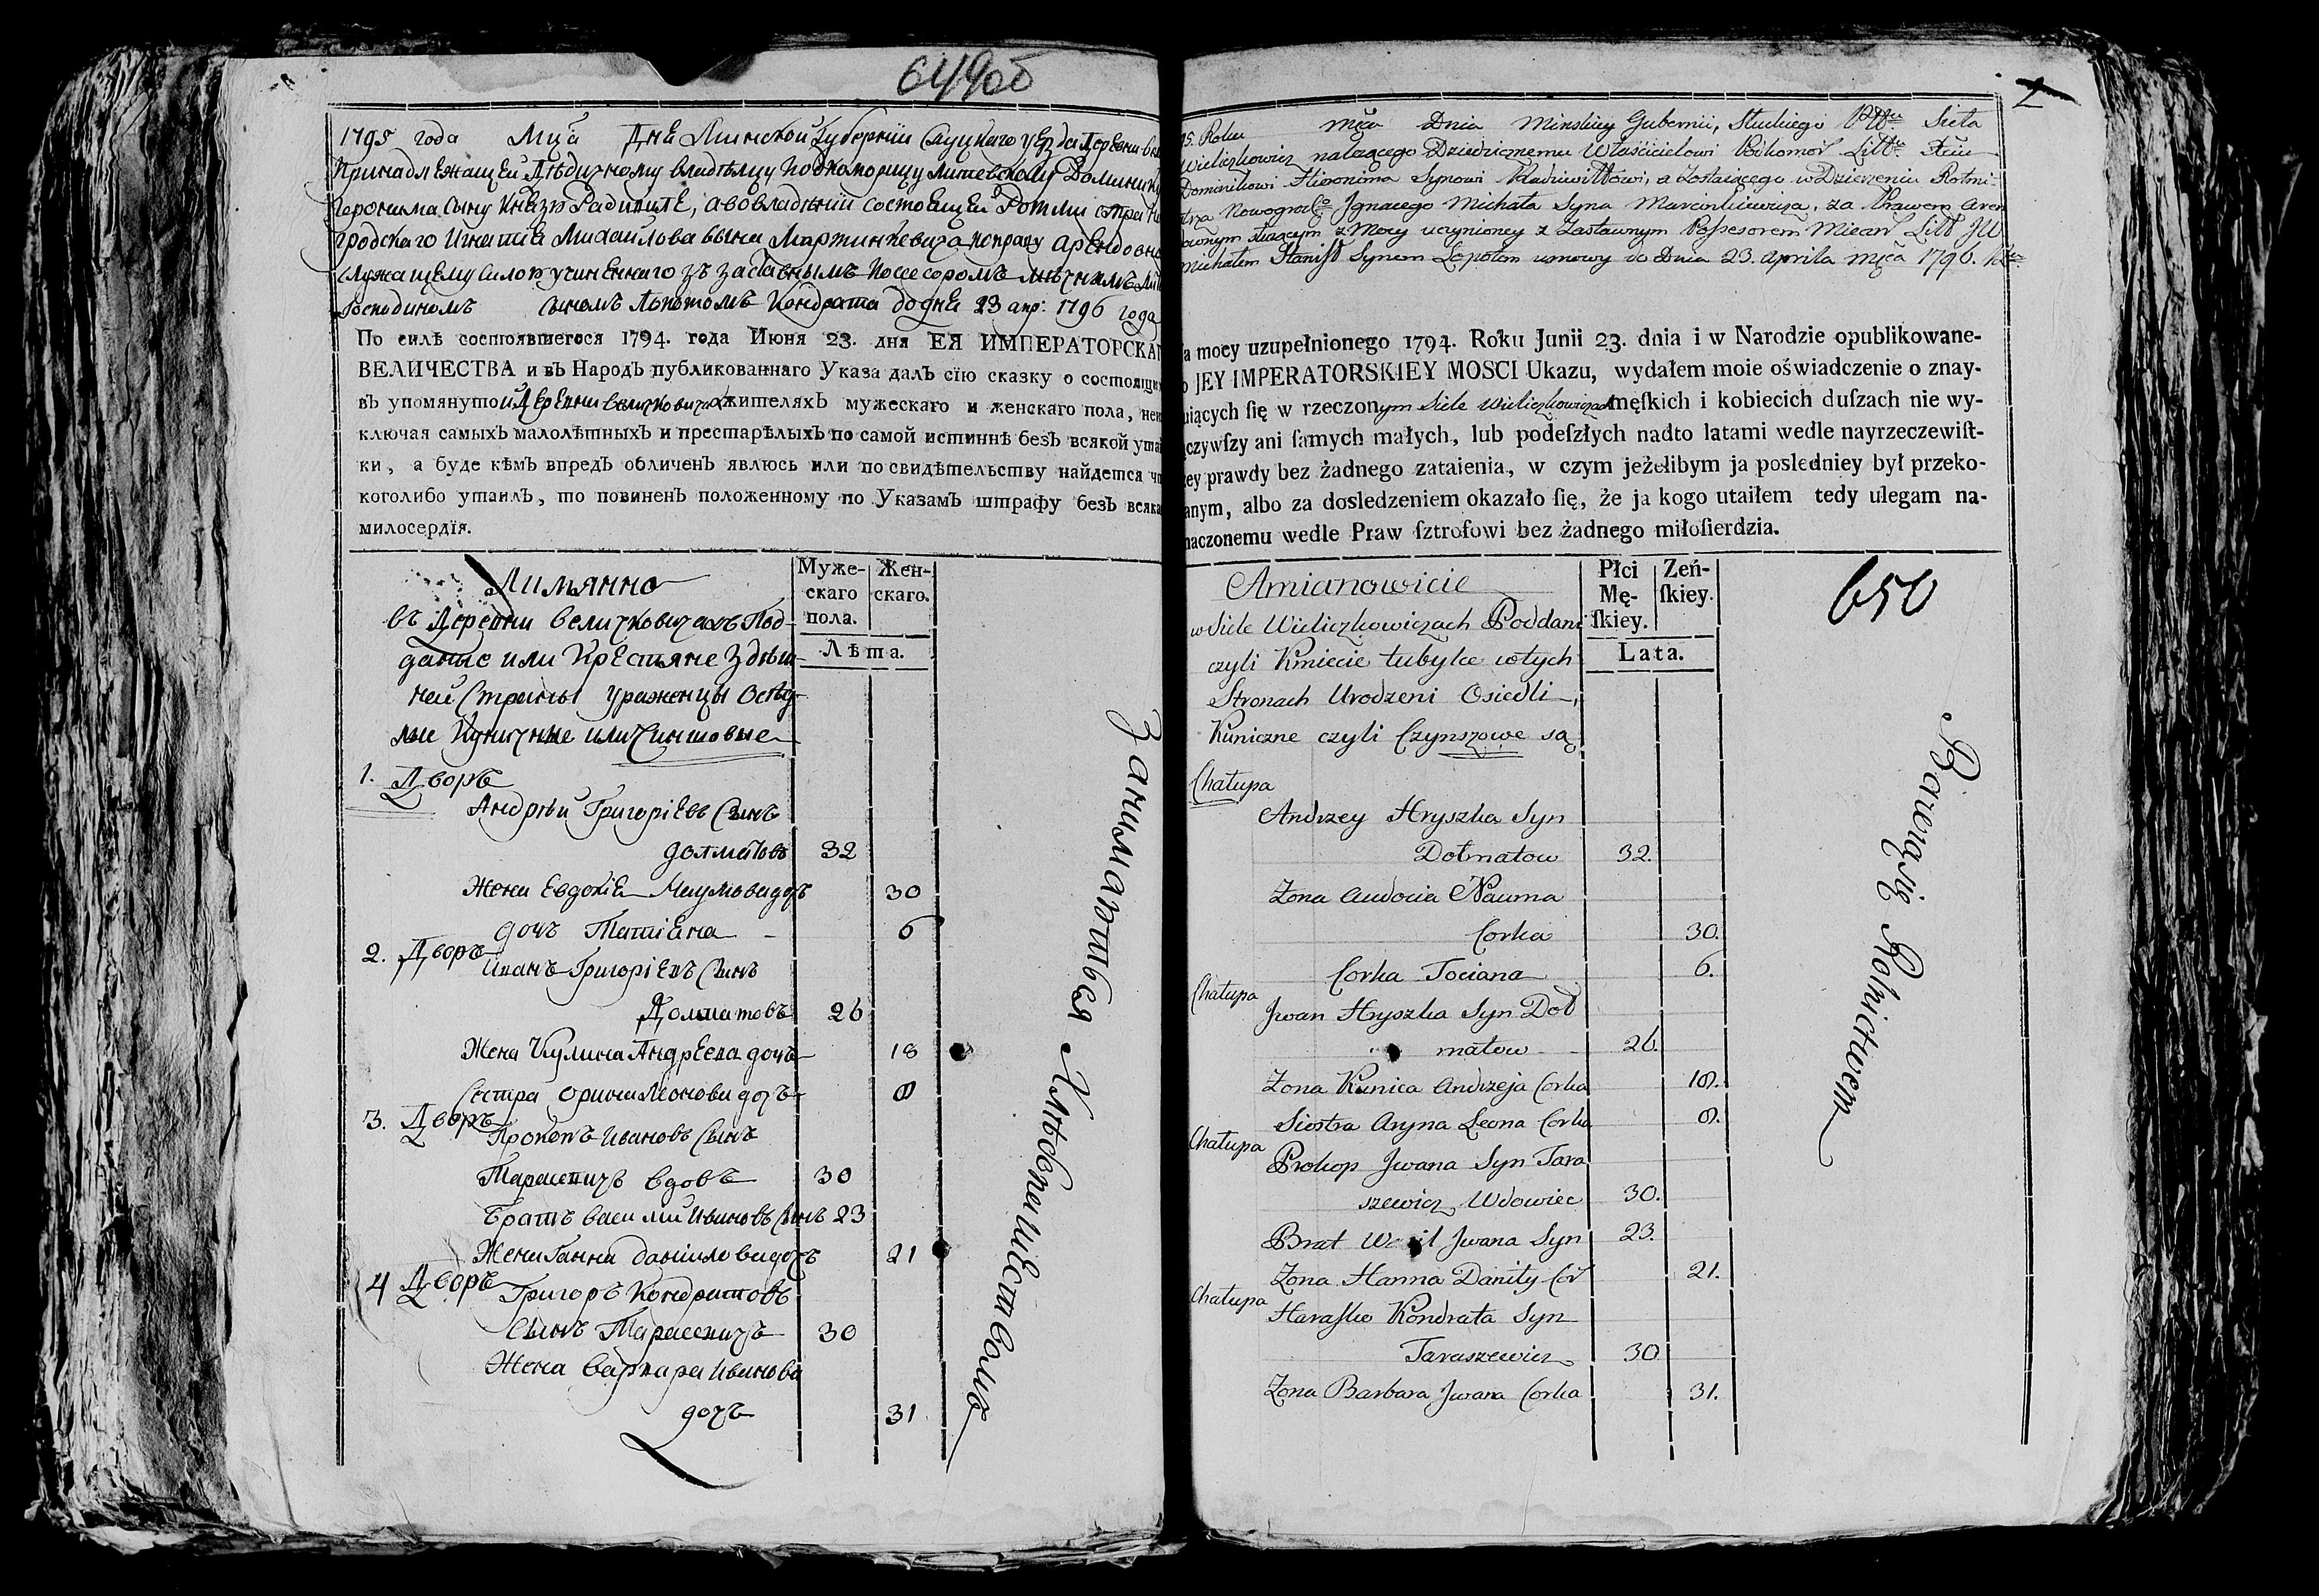 649об
1795 года Мца Дня Минской Губернїи Слуцкаго уезда Деревни
Принадлежащей Дѣдичному владѣлцу Подкоморицу литевскому Доминику
Геронима сыну Князю Радивилѣ, а во владѣнїи состоящей Ротмистра
гродскаго Игнатїя Михайлова сына Марцинкевича по праву арендовно
служащему силою учиненнаго зъ заставнымъ посесоромъ мѣчникомъ
Господиномъ сыномъ Лопотомъ Кондрата до дня 23 апр: 1796 года
По силѣ состоявшегося 1794. года Июня 23. дня ЕЯ ИМПЕРАТОРСКАГ
ВЕЛИЧЕСТВА и въ Народъ публикованнаго Указа далъ сїю сказку о состоящи
въ упомянутой Деревни Величковичахъ жителяхъ мужескаго и женскаго пола, неи
ключая самыхъ малолѣтныхъ и престарѣлыхъ по самой истиннѣ безъ всякой утай
ки, а буде кѣмъ впредъ обличенъ явлюсь или по свидѣтельству найдется чт
коголибо утаилъ, то повиненъ положенному по Указамъ штрафу безъ всяка
милосердїя.
Аимянно
въ Деревни Величковичахъ Под-
даные или Крестьяне здѣш-
ней Страны ураженцы Осѣд-
лые Куничные или Чиншовые
Муже-
скаго
пола.
Жен-
скаго.
Лѣта.
1. Дворъ
Андрѣй Григорїевъ Сынъ
Долматовъ 32
Жена Евдокїя Наумова дочъ 30
дочъ Татїяна - 6
2. Дворъ
Иванъ Григорїевъ Сынъ
Долматовъ 26
Жена Кулина Андреева дочъ 18
Сестра Орина Леонова дочъ 8
3. Дворъ
Прокопъ Ивановъ Сынъ
Тарасевичъ вдовъ 30
Братъ Василий Ивановъ Сынъ 23
Жена Ганна Данилова дочъ 21
4 Дворъ
Григоръ Кондратовъ
Сынъ Тарасевичъ 30
Жена Варвара Иванова
дочъ 31
Занимаются Хлѣбопашествомъ
2
95. Roku Mca Dnia Minskiey Gubernii, Słuckiego Pttu Sieła
Wieliczkowicz należącego Dziedzicznemu Właścicielowi Podkomor Litt Xciu
Dominikowi Hieronima Synowi Radziwiłłowi, a zostaiącego w Dzierżeniu Rotmi-
strza Nowogrodgo Ignacego Michała Syna Marcinkiewicza, za Prawem Aren
downym służącym z Mocy uczynioney z Zastawnym Possesorem Miecznl Litt JW
Michałem Stanisł Synem Łopotem umowy do Dnia 23. Aprila Mca 1796.
a mocy uzupełnionego 1794. Roku Junii 23. dnia i w Narodzie opublikowane-
o JEY IMPERATORSKIEY MOSCI Ukazu, wydałem moie oświadczenie o znay-
uiących ſię w rzeczonym Siele Wieliczkowiczach męſkich i kobiecich duſzach nie wy-
czywſzy ani ſamych małych, lub podeſzłych nadto latami wedle nayrzeczewiſt-
zey prawdy bez żadnego zataienia, w czym jeżelibym ja posledniey był przeko-
anym, albo za dosledzeniem okazało ſię, że ja kogo utaiłem tedy ulegam na-
naczonemu wedle Praw ſztrofowi bez żadnego miłoſierdzia.
650
Amianowicie
w Siele Wieliczkowiczach Poddani
czyli Kmiecie tubylce w tych
Stronach Urodzeni Osiedli,
Kuniczne czyli Czynszowe są
Płci
Mę-
ſkiey.
Zeń-
ſkiey.
Lata.
Chałupa
Andrzey Hryszka Syn
Dołmatow 32.
Zona Audocia Nauma
Corka 30.
Corka Tociana 6.
Chałupa
Jwan Hryszka Syn Doł
matow 26.
Zona Kunica Andrzeja Corka 18.
Siostra Aryna Leona Corka 8.
Chałupa
Prokop Jwana Syn Tara
szewicz Wdowiec 30.
Brat Wasil Jwana Syn 23.
Zona Hanna Daniły Cor 21.
Chałupa
Haraſko Kondrata Syn
Taraszewicz 30
Zona Barbara Jwana Corka 31.
Bawią się Rolnictwem